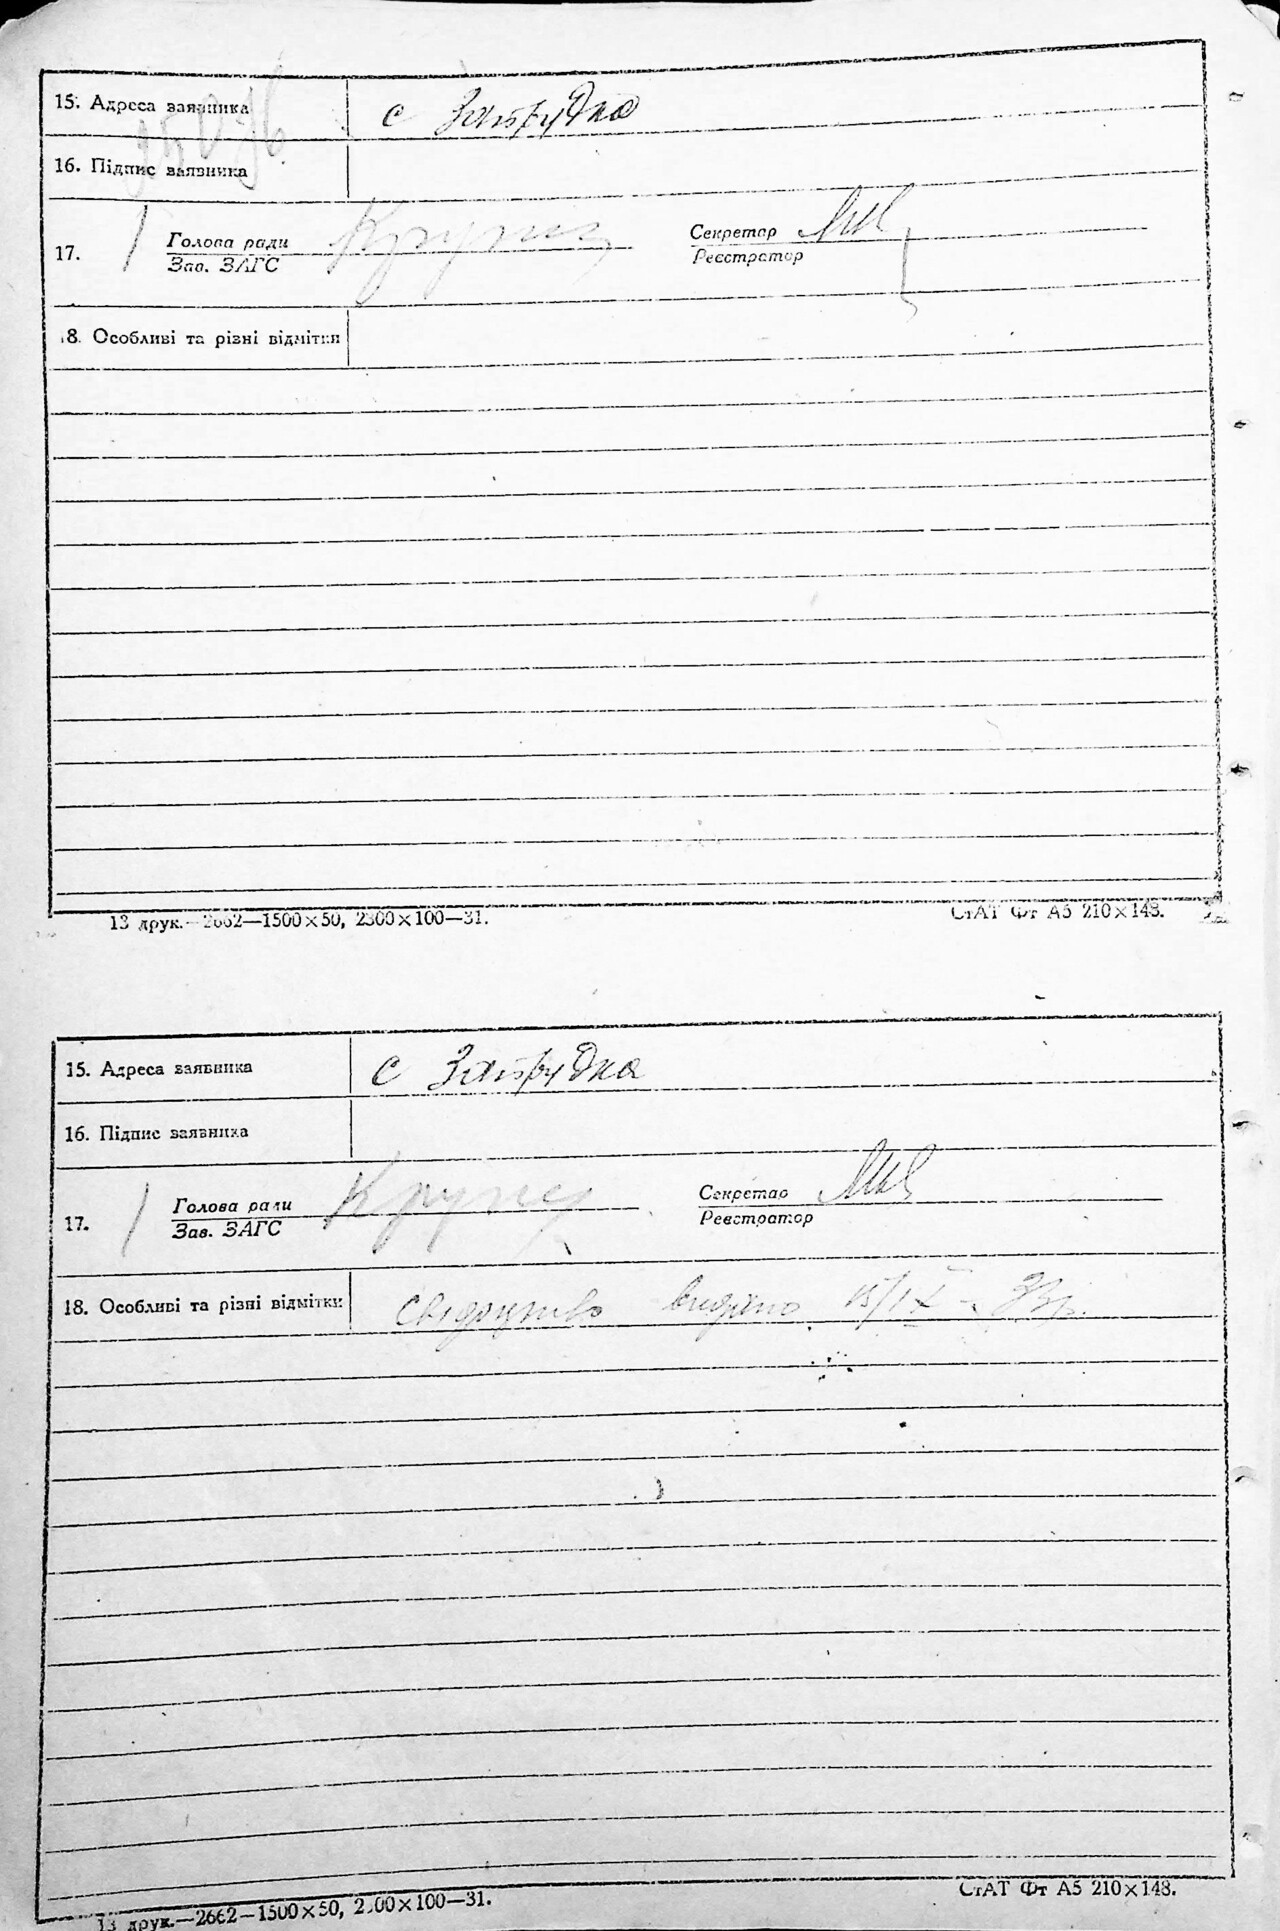 15. Адреса заявника с Запрудка
16. Підпис заявника
17. Голова ради Секретар
Зав. ЗАГС Реєстратор
18. Особливі та різні відмітки
13 друк.—2662—1500×50, 2300×100—31. СтАТ Фт А5 210×148.
15. Адреса заявника с Запрудка
16. Підпис заявника
17. Голова ради Секретар
Зав. ЗАГС Реєстратор
18. Особливі та різні відмітки Свідоцтво видано 15/IX - 33р.
13 друк.—2662—1500×50, 2300×100—31. СтАТ Фт А5 210×148.